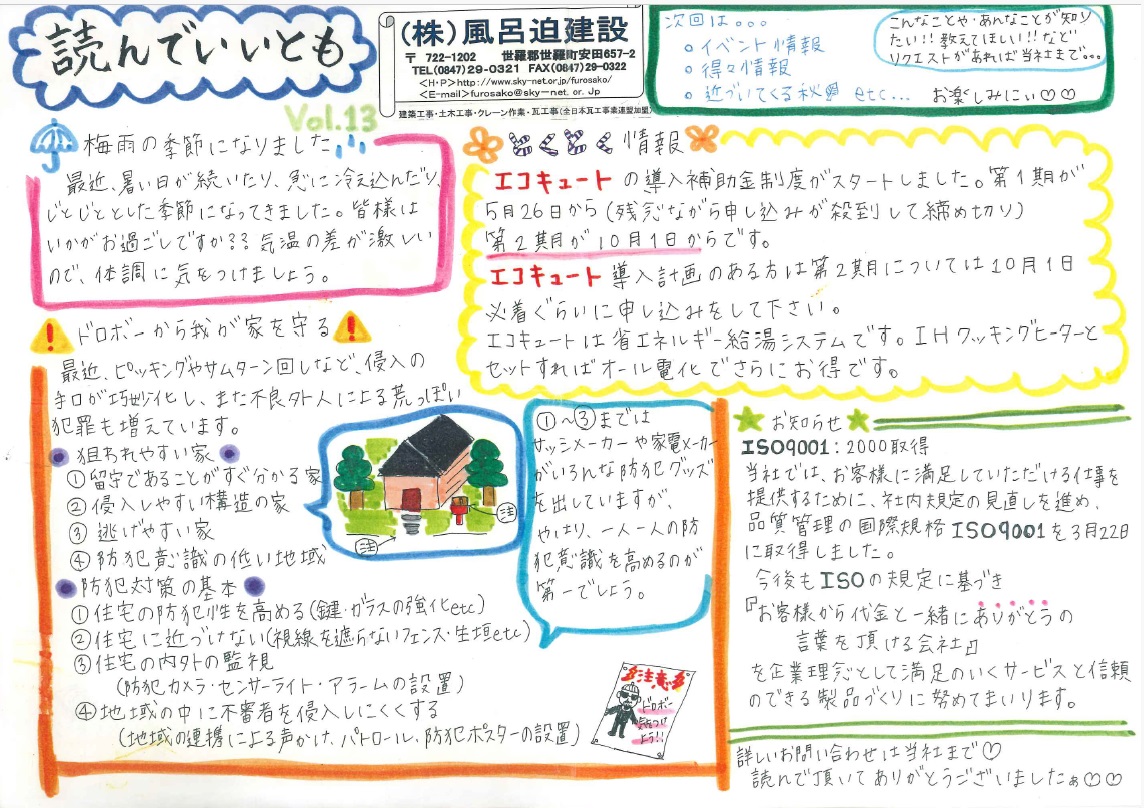 読んでいいとも
Vol.13
(株)風呂迫建設
〒 722-1202 世羅郡世羅町安田657-2
TEL(0847)29-0321 FAX(0847)29-0322
<H・P>http://www.sky-net.or.jp/furosako/
<E-mail>furosako@sky-net. or. Jp
建築工事・土木工事・クレーン作業・瓦工事(全日本瓦工事業連盟加盟)
次回は。。。
イベント情報
得々情報
近づいてくる秋 etc...
こんなことや・あんなことが知り
たい!!教えてほしい!!など
リクエストがあれば当社まで...
お楽しみにぃ♡♡
梅雨の季節になりました
最近、暑い日が続いたり、急に冷え込んだり、
じとじととした季節になってきました。皆様は
いかがお過ごしですか??気温の差が激しい
ので、体調に気をつけましょう。
とくとく情報
エコキュートの導入補助金制度がスタートしました。第1期が
5月26日から(残念ながら申し込みが殺到して締め切り)
第2期が10月1日からです。
エコキュート導入計画のある方は第2期については10月1日
必着ぐらいに申し込みをして下さい。
エコキュートは省エネルギー給湯システムです。IHクッキングヒーターと
セットすればオール電化でさらにお得です。
ドロボーから我が家を守る
最近、ピッキングやサムターン回しなど、侵入の
手口が巧妙化し、また不良外人による荒っぽい
犯罪も増えています。
狙われやすい家
①留守であることがすぐ分かる家
②侵入しやすい構造の家
③逃げやすい家
④防犯意識の低い地域
防犯対策の基本
①住宅の防犯性を高める(鍵・ガラスの強化etc)
②住宅に近づけない(視線を遮らないフェンス・生垣etc)
③住宅の内外の監視
(防犯カメラ・センサーライト・アラームの設置)
④地域の中に不審者を侵入しにくくする
(地域の連携による声かけ、パトロール、防犯ポスターの設置)
註
註
①~③までは
サッシメーカーや家電メーカー
がいろんな防犯グッズ
を出していますが、
やはり、一人一人の防
犯意識を高めるのが
第一でしょう。
注意
ドロボー
気をつけ
よう!!
お知らせ
ISO9001:2000取得
当社では、お客様に満足していただける仕事を
提供するために、社内規定の見直しを進め、
品質管理の国際規格ISO9001を3月22日
に取得しました。
今後もISOの規定に基づき
『お客様から代金と一緒にありがとうの
言葉を頂ける会社』
を企業理念として満足のいくサービスと信頼
のできる製品づくりに努めてまいります。
詳しいお問い合わせは当社まで♡
読んで頂いてありがとうございましたぁ♡♡